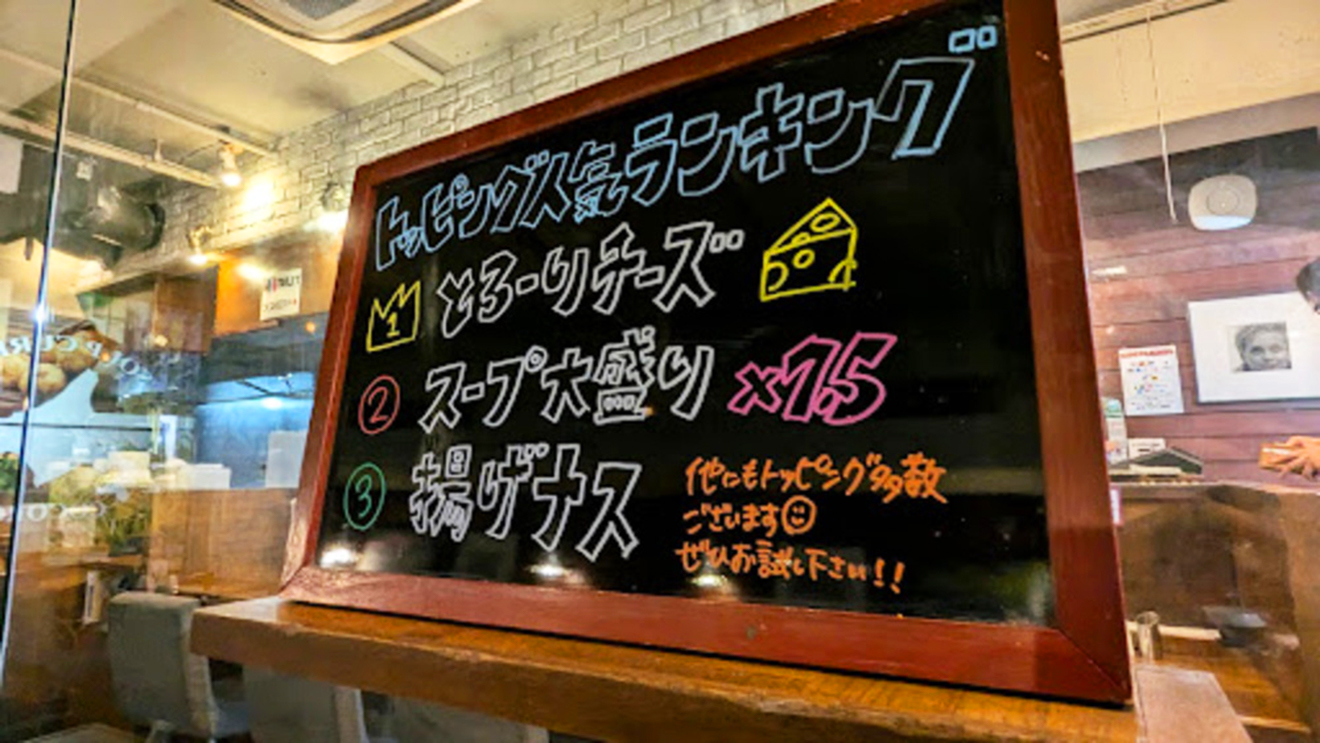 トッピング人気ランキング
1 とろーりチーズ
② スープ大盛り ×1.5
③ 揚げナス
他にもトッピング多数
ございます☺
ぜひお試し下さい!!